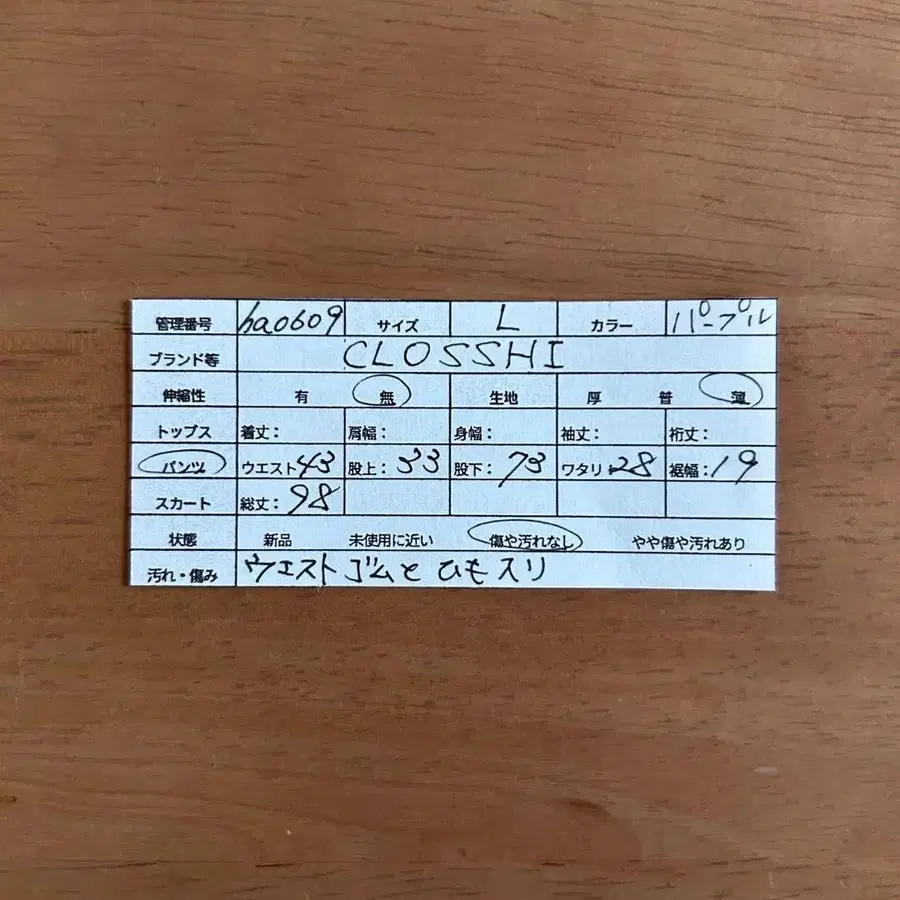 管理番号 ha0609 サイズ L カラー パープル
ブランド等 CLOSSHI
伸縮性 有 無 生地 厚 普 薄
トップス 着丈: 肩幅: 身幅: 袖丈: 裄丈:
パンツ ウエスト43 股上: 33 股下: 73 ワタリ:28 裾幅: 19
スカート 総丈: 98
状態 新品 未使用に近い 傷や汚れなし やや傷や汚れあり
汚れ・傷み ウエストゴムとひもスリ